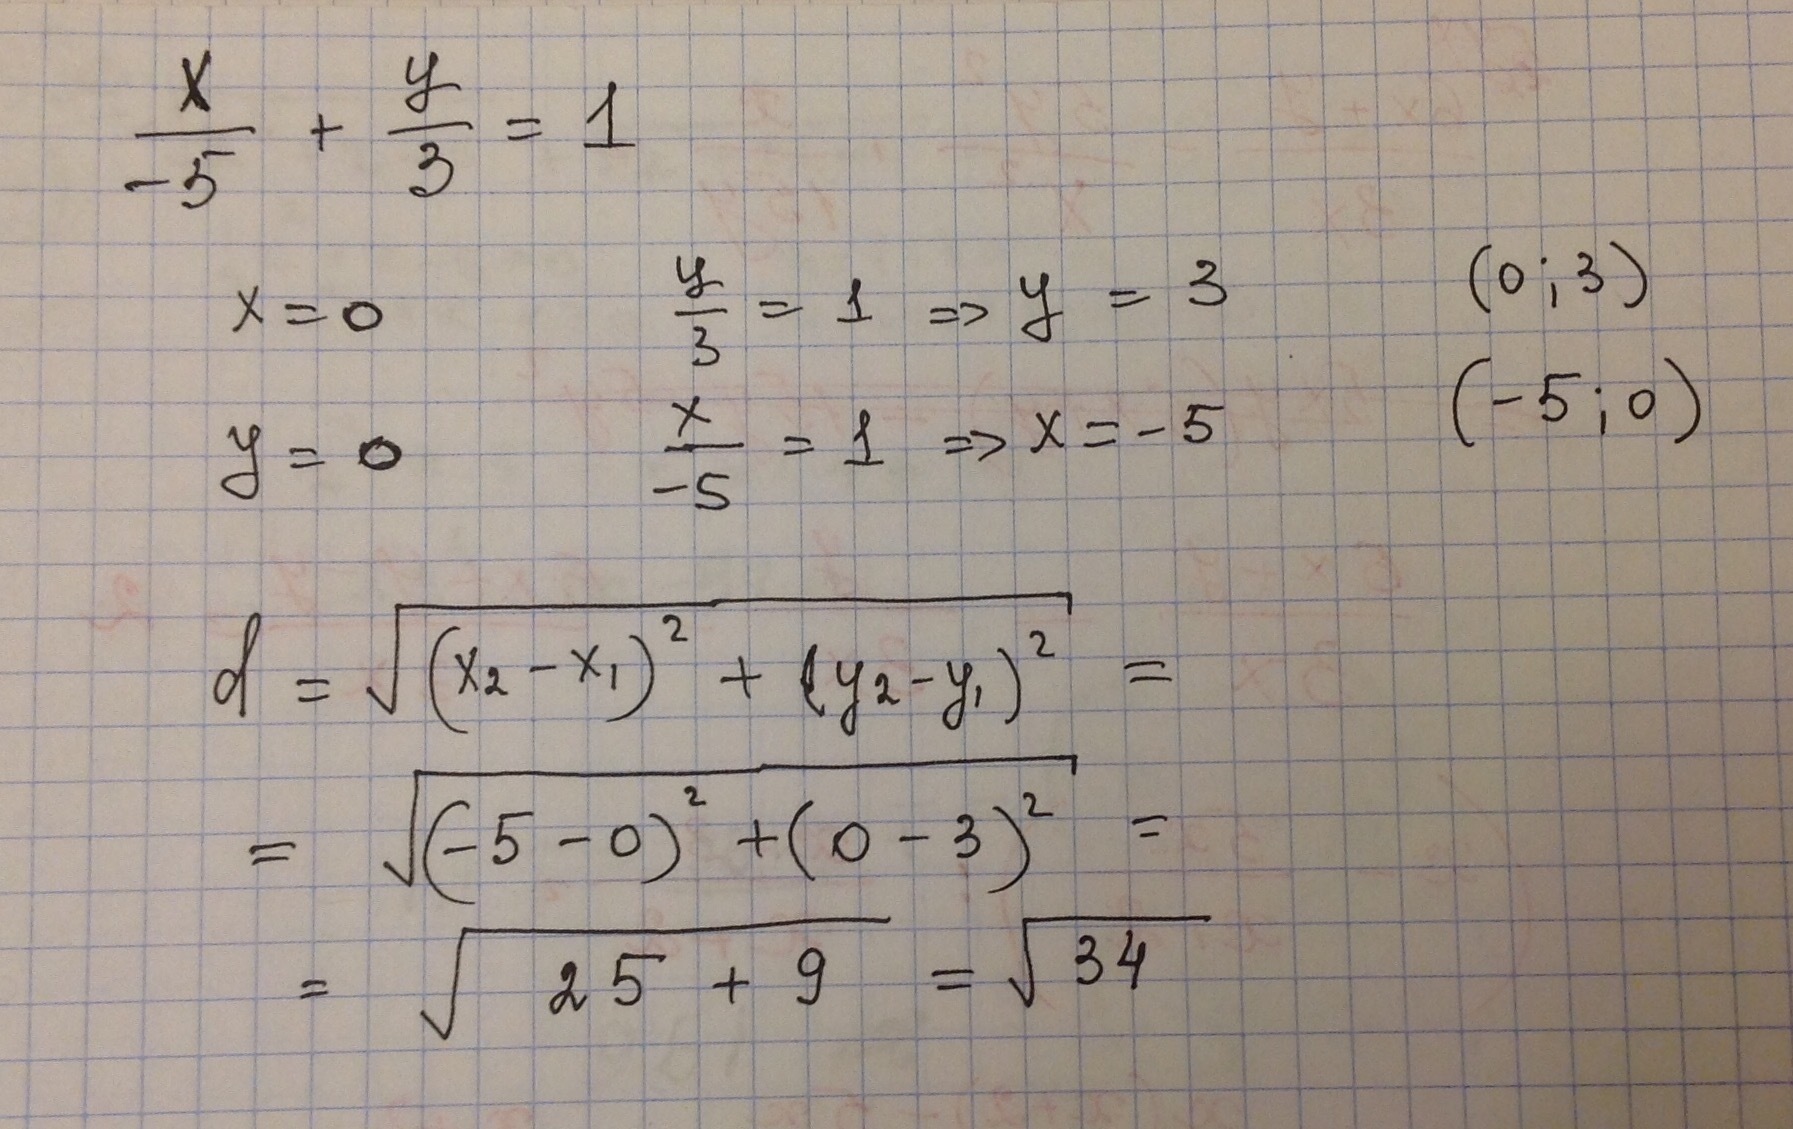 x/-5 + y/3 = 1
x = 0 y/3 = 1 => y = 3 (0;3)
y = 0 x/-5 = 1 => x = -5 (-5;0)
d = √((x₂ - x₁)² + (y₂ - y₁)²) =
= √((-5 - 0)² + (0 - 3)²) =
= √(25 + 9) = √34